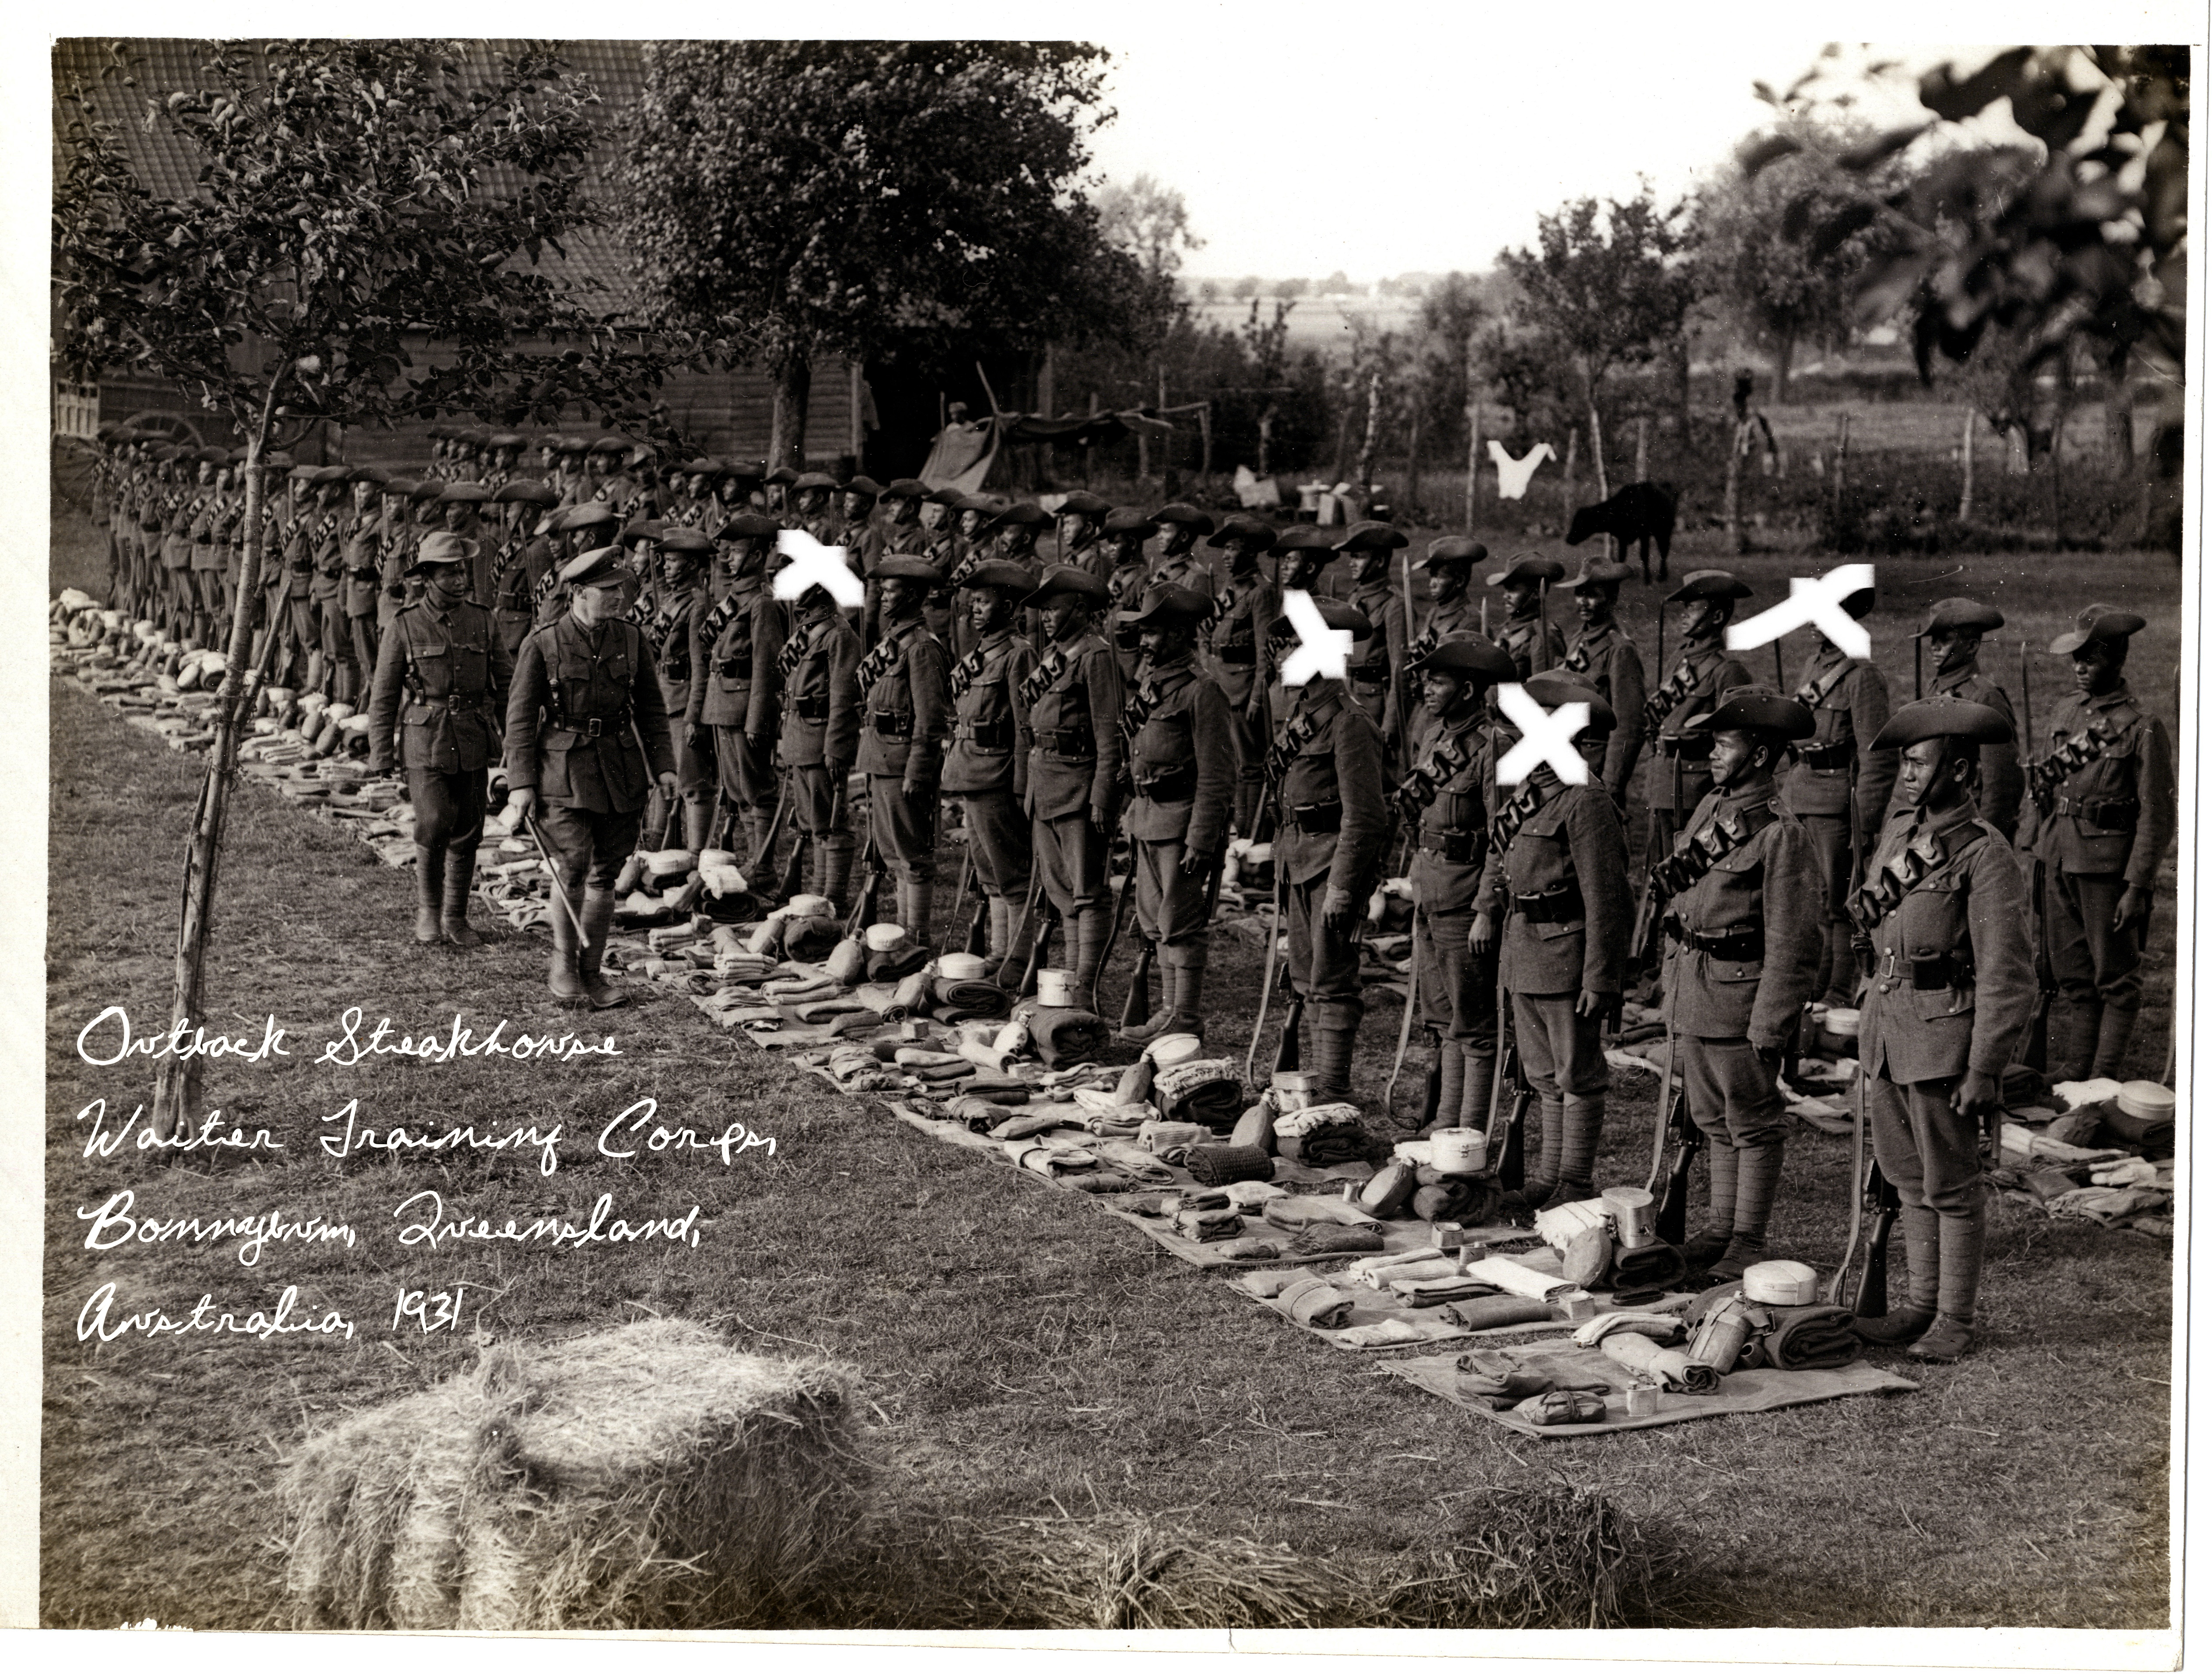 Outback Steakhouse
Waiter Training Corps,
Bonnybum, Queensland,
Australia, 1931